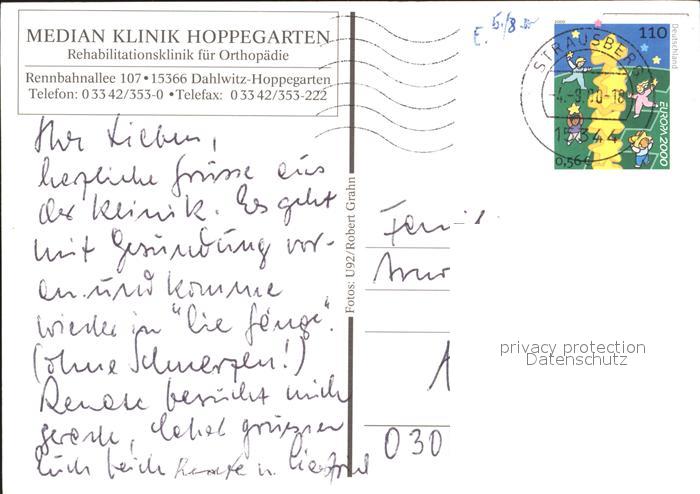 MEDIAN KLINIK HOPPEGARTEN
Rehabilitationsklinik für Orthopädie
Rennbahnallee 107 • 15366 Dahlwitz-Hoppegarten
Telefon: 0 33 42/353-0 • Telefax: 0 33 42/353-222
E. 5./8.00
2000
110
Deutschland
EUROPA 2000
0,56 €
STRAUSBERG
-4.-8.00-18
15344
Ihr Lieben,
herzliche Grüsse aus
der Klinik. Es geht
mit Gesundung vor-
an und komme
wieder in "die Gänge".
(ohne Schmerzen!)
Renate besucht mich
gerade, dabei grüssen
Euch beide Renate u.
Fotos: U92/Robert Grahn
Fami
030
privacy protection
Datenschutz